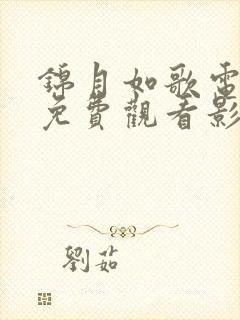 錦月如歌電
免費觀看影
劉茹